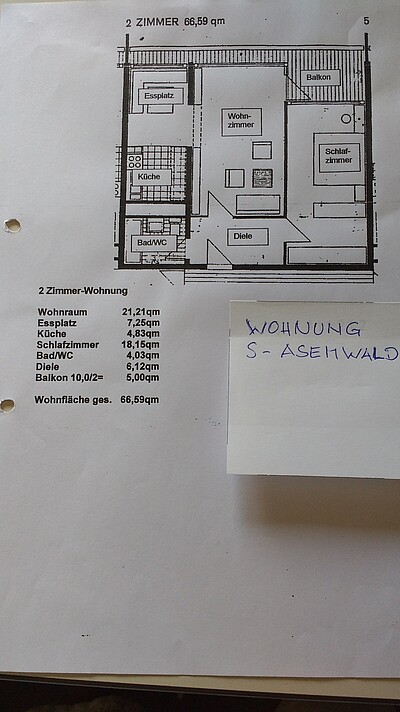 2 ZIMMER 66,59 qm 5
Balkon
Essplatz
Wohn-
zimmer
Schlaf-
zimmer
Küche
Diele
Bad/WC
2 Zimmer-Wohnung
Wohnraum 21,21qm
Essplatz 7,25qm
Küche 4,83qm
Schlafzimmer 18,15qm
Bad/WC 4,03qm
Diele 6,12qm
Balkon 10,0/2= 5,00qm
Wohnfläche ges. 66,59qm
WOHNUNG
S- ASEMWALD